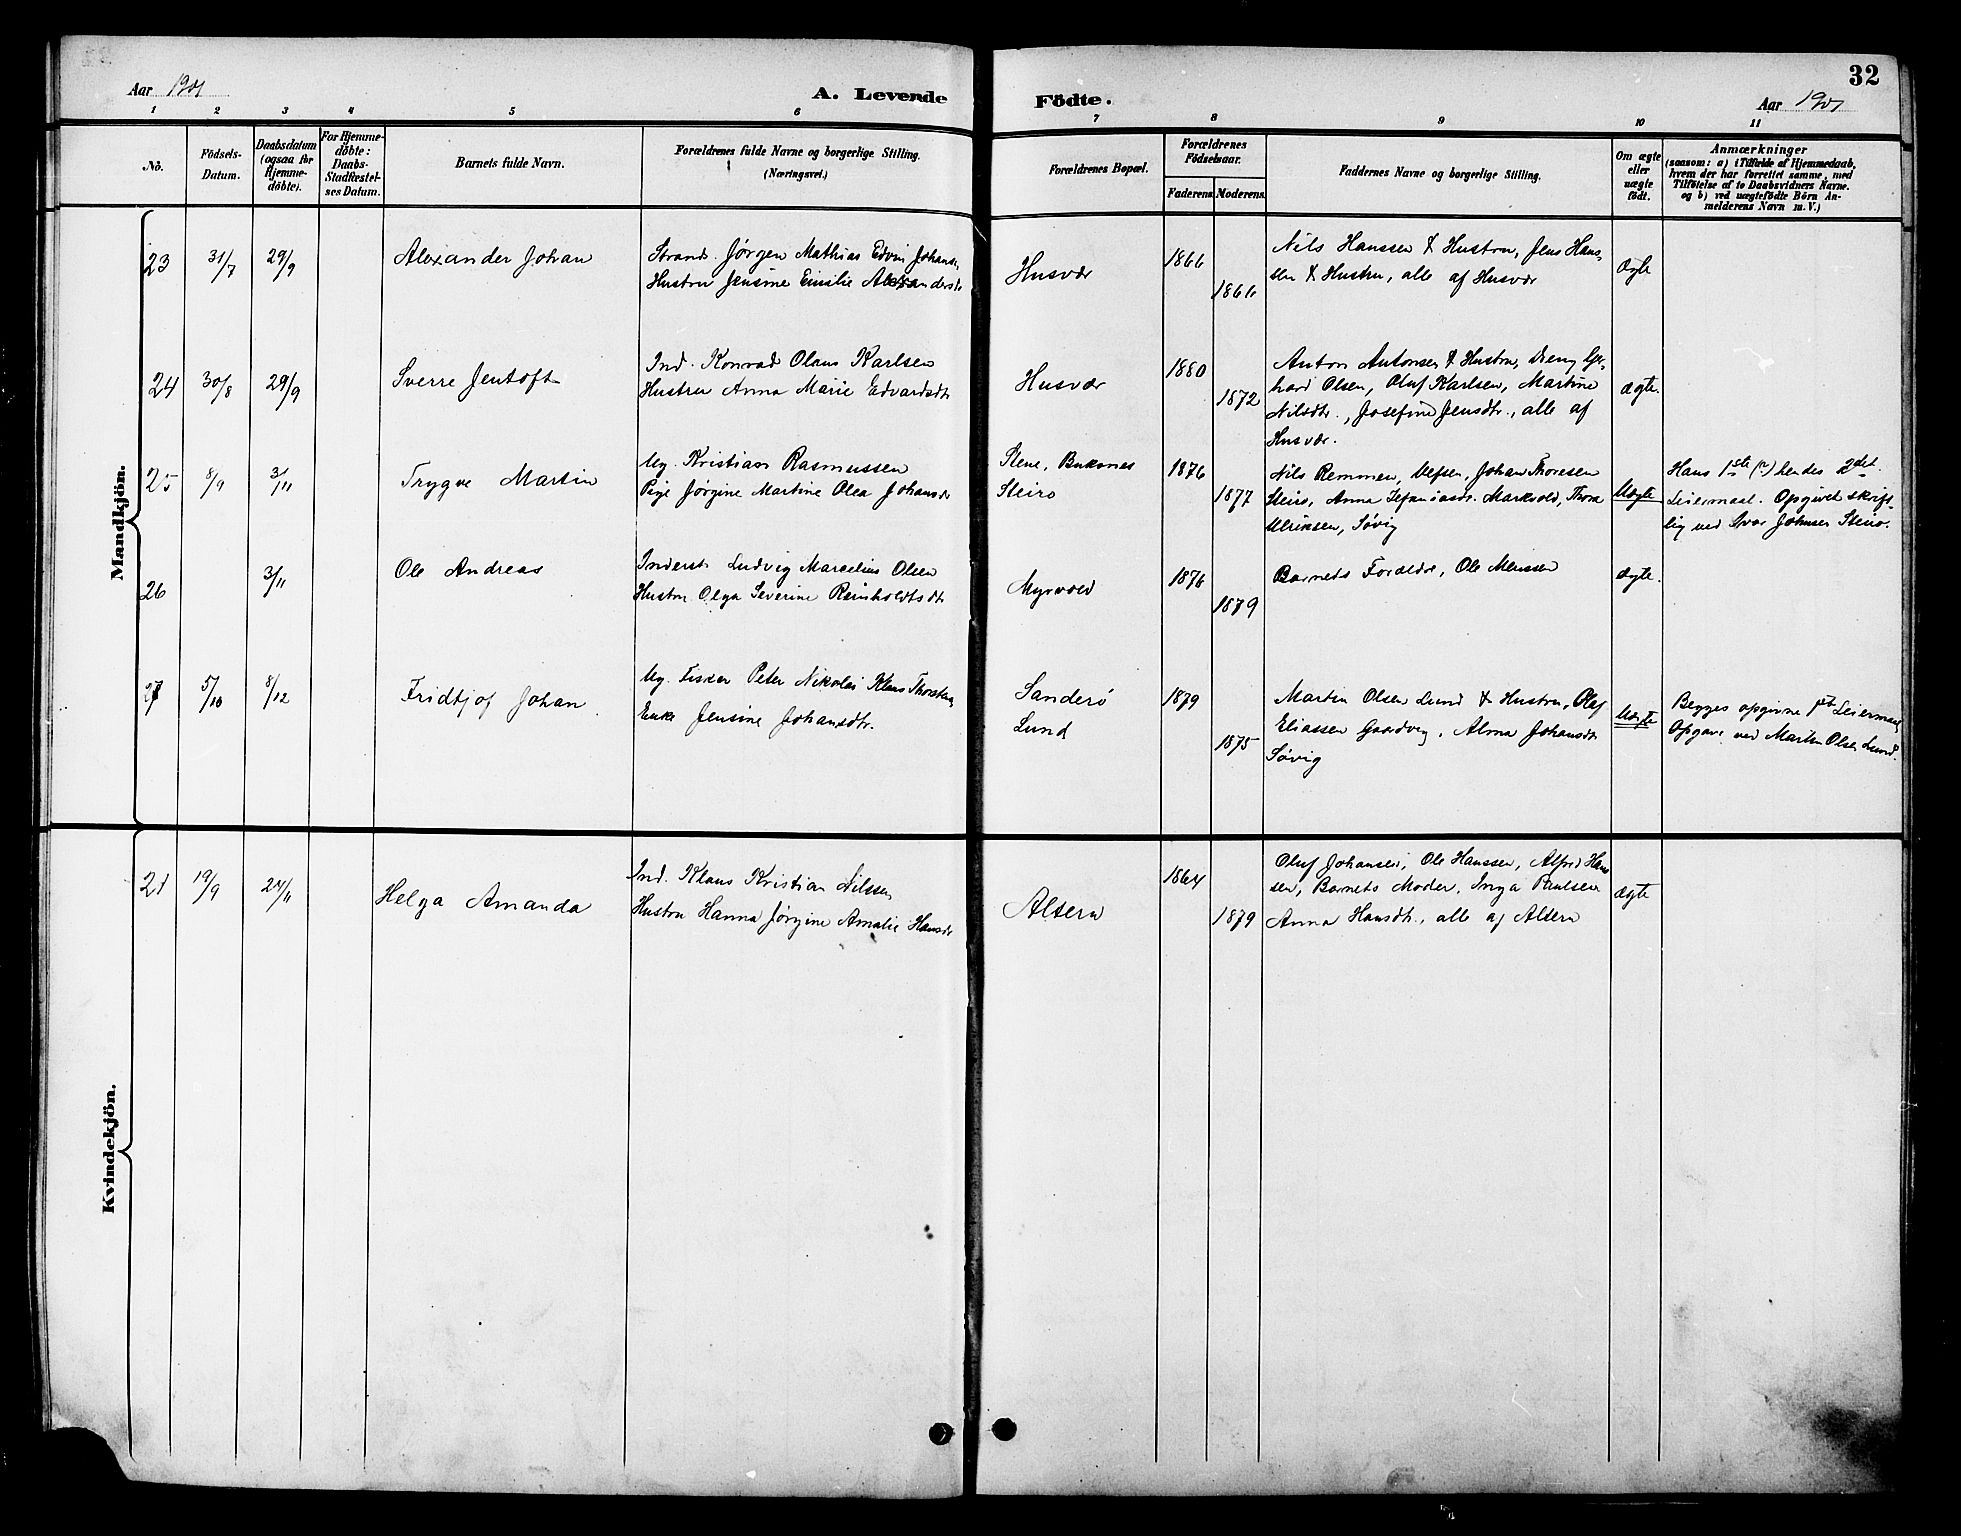 32
Aar 1901
A. Levende Födte.
Aar 1901
1 2 3 4 5 6 7 8 9 10 11
No.
Födsels-Datum.
Daabsdatum (ogsaa for Hjemme-döbte).
For Hjemme-döbte: Daabs-Stadfæstel-ses Datum.
Barnets fulde Navn.
Forældrenes fulde Navne og borgerlige Stilling.
(Næringsvei.)
Forældrenes Bopæl.
Forældrenes Födselsaar.
Faderens Moderens
Faddernes Navne og borgerlige Stilling.
Om ægte eller uægte födt.
Anmærkninger
(saasom: a) i Tilfælde af Hjemmedaab,
hvem der har forrettet samme, med
Tilföielse af to Daabsvidners Navne.
og b) ved uægtefödte Börn An-
melderens Navn m. V.)
Mandkjön.
23 31/7 29/9 Alexander Johan
Strands. Jørgen Mathias Edvin Johans.
Hustru Jensine Emilie Alexandersdr
Husvær 1866 1866
Nils Hanssen & Hustru, Jens Hans-
sen & Hustru, alle af Husvær
Ægte
24 30/8 29/9 Sverre Jentoft
Ind. Konrad Olaus Karlsen
Hustru Anna Marie Edvardsdtr
Husvær 1880 1872
Anton Antonsen & Hustru, Dreng Ger-
hard Olsen, Oluf Karlsen, Martine
Nilsdtr., Josefine Jensdtr., alle af
Husvær.
ægte.
25 8/9 3/11 Trygve Martin
Ug. Kristian Rasmussen
Pige Jørgine Martine Olea Johansdr
Stene, Buksnes
Steiro
1876 1877
Nils Remmen, Vefsen, Johan Thoresen
Steiro, Anna Stefaniasdr. Markvold, Thora
Ulriksen, Søvig
Uægte
Hans 1ste (?) hendes 2det
Leiermaal. Opgivet skrift-
lig ved Ivar Johnsen Steiro.
26 3/11 Ole Andreas
Inderst Ludvig Marcelius Olsen
Hustru Olga Severine Reinholdtsdtr
Myrvold 1876 1879
Barnets Forældre, Ole Menssen
ægte.
27 5/10 8/12 Fridtjof Johan
Ug. Fisker Peter Nikolai Klaus Thorstens.
Enke Jensine Johansdtr.
Sanderø
Lund
1879 1875
Martin Olsen Lund & Hustru, Olaf
Eliassen Gaardveg, Alma Johansdtr
Søvig
Uægte
Begges opgivne 1ste Leiermaal
Opgave ved Martin Olsen Lund.
Kvindekjön.
21 19/9 24/11 Helga Amanda
Ind. Klaus Kristian Nilssen
Hustru Hanna Jørgine Amalie Hansdr
Altern 1864 1879
Oluf Johansen, Ole Hanssen, Alfred Hans
sen, Barnets Moder, Inga Paulsen
Anna Hansdtr., alle af Altern
ægte